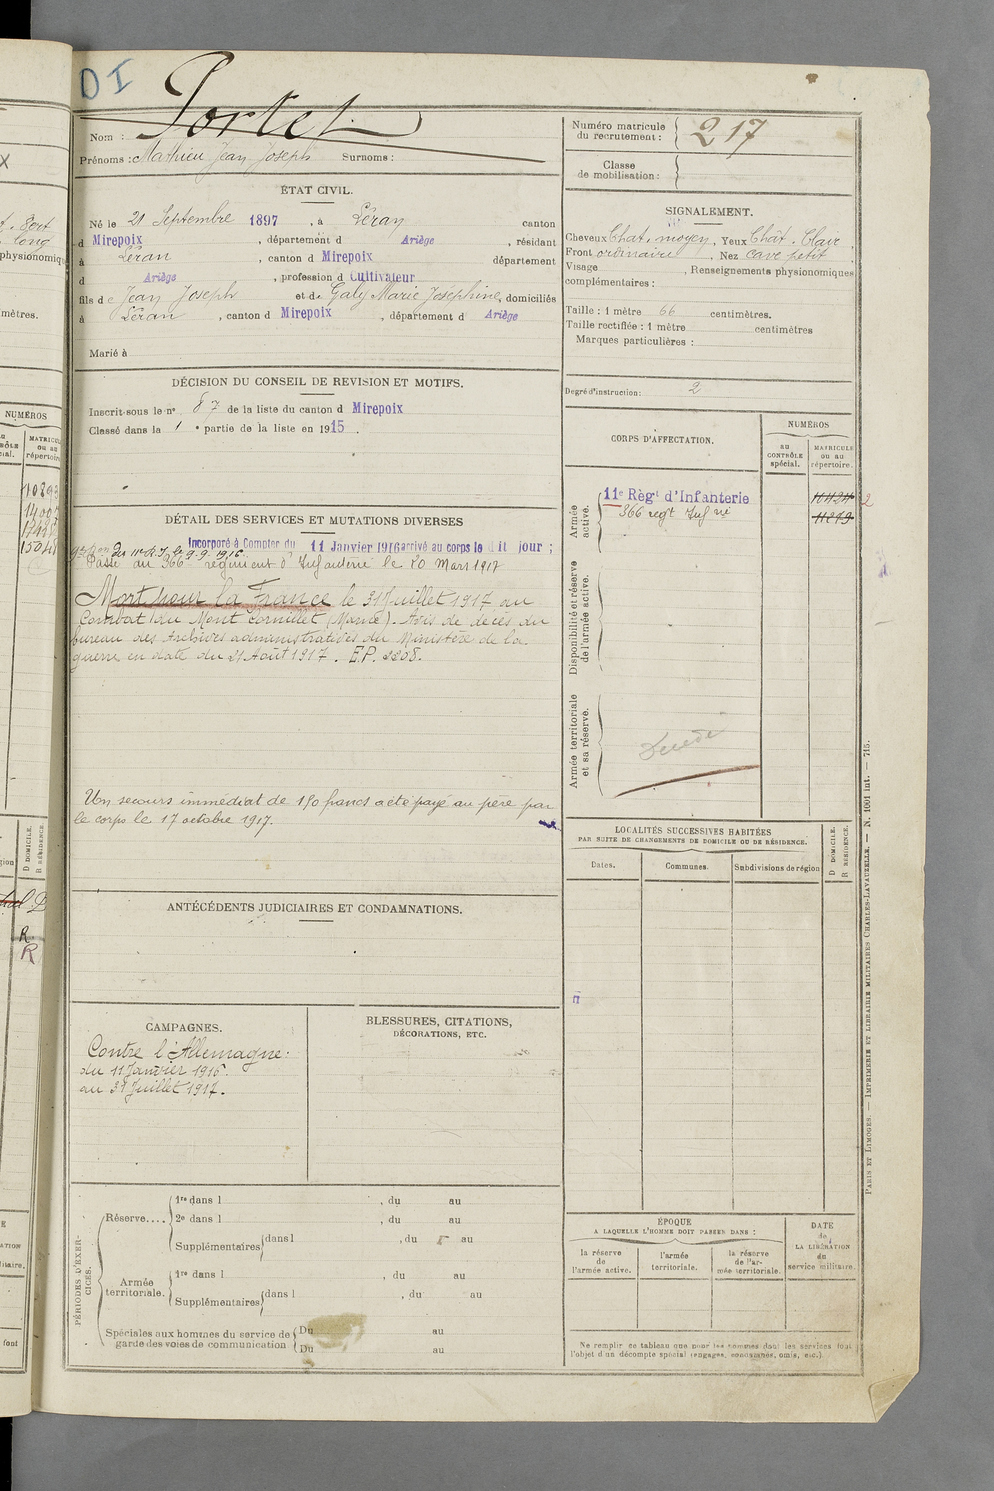 DI
Portet
Nom :
Prénoms : Mathieu Jean Joseph Surnoms :
ÉTAT CIVIL.
Né le 21 Septembre 1897, à Léran canton
d Mirepoix, département d Ariège, résidant
à Léran, canton d Mirepoix département
d Ariège, profession d Cultivateur
fils de Jean Joseph et de Galy Marie Joséphine, domiciliés
à Léran, canton d Mirepoix, département d Ariège
Marié à
DÉCISION DU CONSEIL DE REVISION ET MOTIFS.
Inscrit sous le nº 87 de la liste du canton d Mirepoix
Classé dans la 1 e partie de la liste en 1915.
DÉTAIL DES SERVICES ET MUTATIONS DIVERSES
Incorporé à Compter du 11 Janvier 1916 arrivé au corps le dit jour ;
du 11e R.I. le 9.9.1916.
Passé au 366e régiment d'Infanterie le 20 Mars 1917
Mort pour la France le 31 Juillet 1917 au
Combat du Mont Cornillet (Marne). Avis de décès du
bureau des Archives administratives du Ministère de la
guerre en date du 21 Août 1917. E.P. 2208.
Un secours immédiat de 150 francs a été payé au père par
le corps le 17 octobre 1917.
ANTÉCÉDENTS JUDICIAIRES ET CONDAMNATIONS.
CAMPAGNES.
Contre l'Allemagne:
du 11 Janvier 1916
au 31 Juillet 1917.
BLESSURES, CITATIONS,
DÉCORATIONS, ETC.
PÉRIODES D'EXERCICES.
Réserve....
1re dans l , du au
2e dans l , du au
Supplémentaires dans l , du au
Armée
territoriale.
1re dans l , du au
Supplémentaires dans l , du au
Spéciales aux hommes du service de
garde des voies de communication
Du au
Du au
Numéro matricule
du recrutement : 217
Classe
de mobilisation :
SIGNALEMENT.
Cheveux Chat. moyen, Yeux Chât. Clair,
Front ordinaire, Nez cave petit
Visage , Renseignements physionomiques
complémentaires :
Taille : 1 mètre 66 centimètres.
Taille rectifiée : 1 mètre centimètres
Marques particulières :
Degré d'instruction : 2
CORPS D'AFFECTATION.
NUMÉROS
au
CONTRÔLE
spécial.
MATRICULE
ou au
répertoire.
Armée
active.
11e Régt d'Infanterie
366 regt Inf rie
Disponibilité et réserve
de l'armée active.
Armée territoriale
et sa réserve.
Décédé
LOCALITÉS SUCCESSIVES HABITÉES
PAR SUITE DE CHANGEMENTS DE DOMICILE OU DE RÉSIDENCE.
Dates.
Communes.
Subdivisions de région
D DOMICILE.
R RÉSIDENCE.
ÉPOQUE
A LAQUELLE L'HOMME DOIT PASSER DANS :
la réserve
de
l'armée active.
l'armée
territoriale.
la réserve
de l'ar-
mée territoriale.
DATE
de
LA LIBÉRATION
du
service militaire.
Ne remplir ce tableau que pour les hommes dont les services font
l'objet d'un décompte spécial (engagés, condamnés, omis, etc.).
PARIS ET LIMOGES. — IMPRIMERIE ET LIBRAIRIE MILITAIRES CHARLES-LAVAUZELLE. — N. 1061 int. — 715.